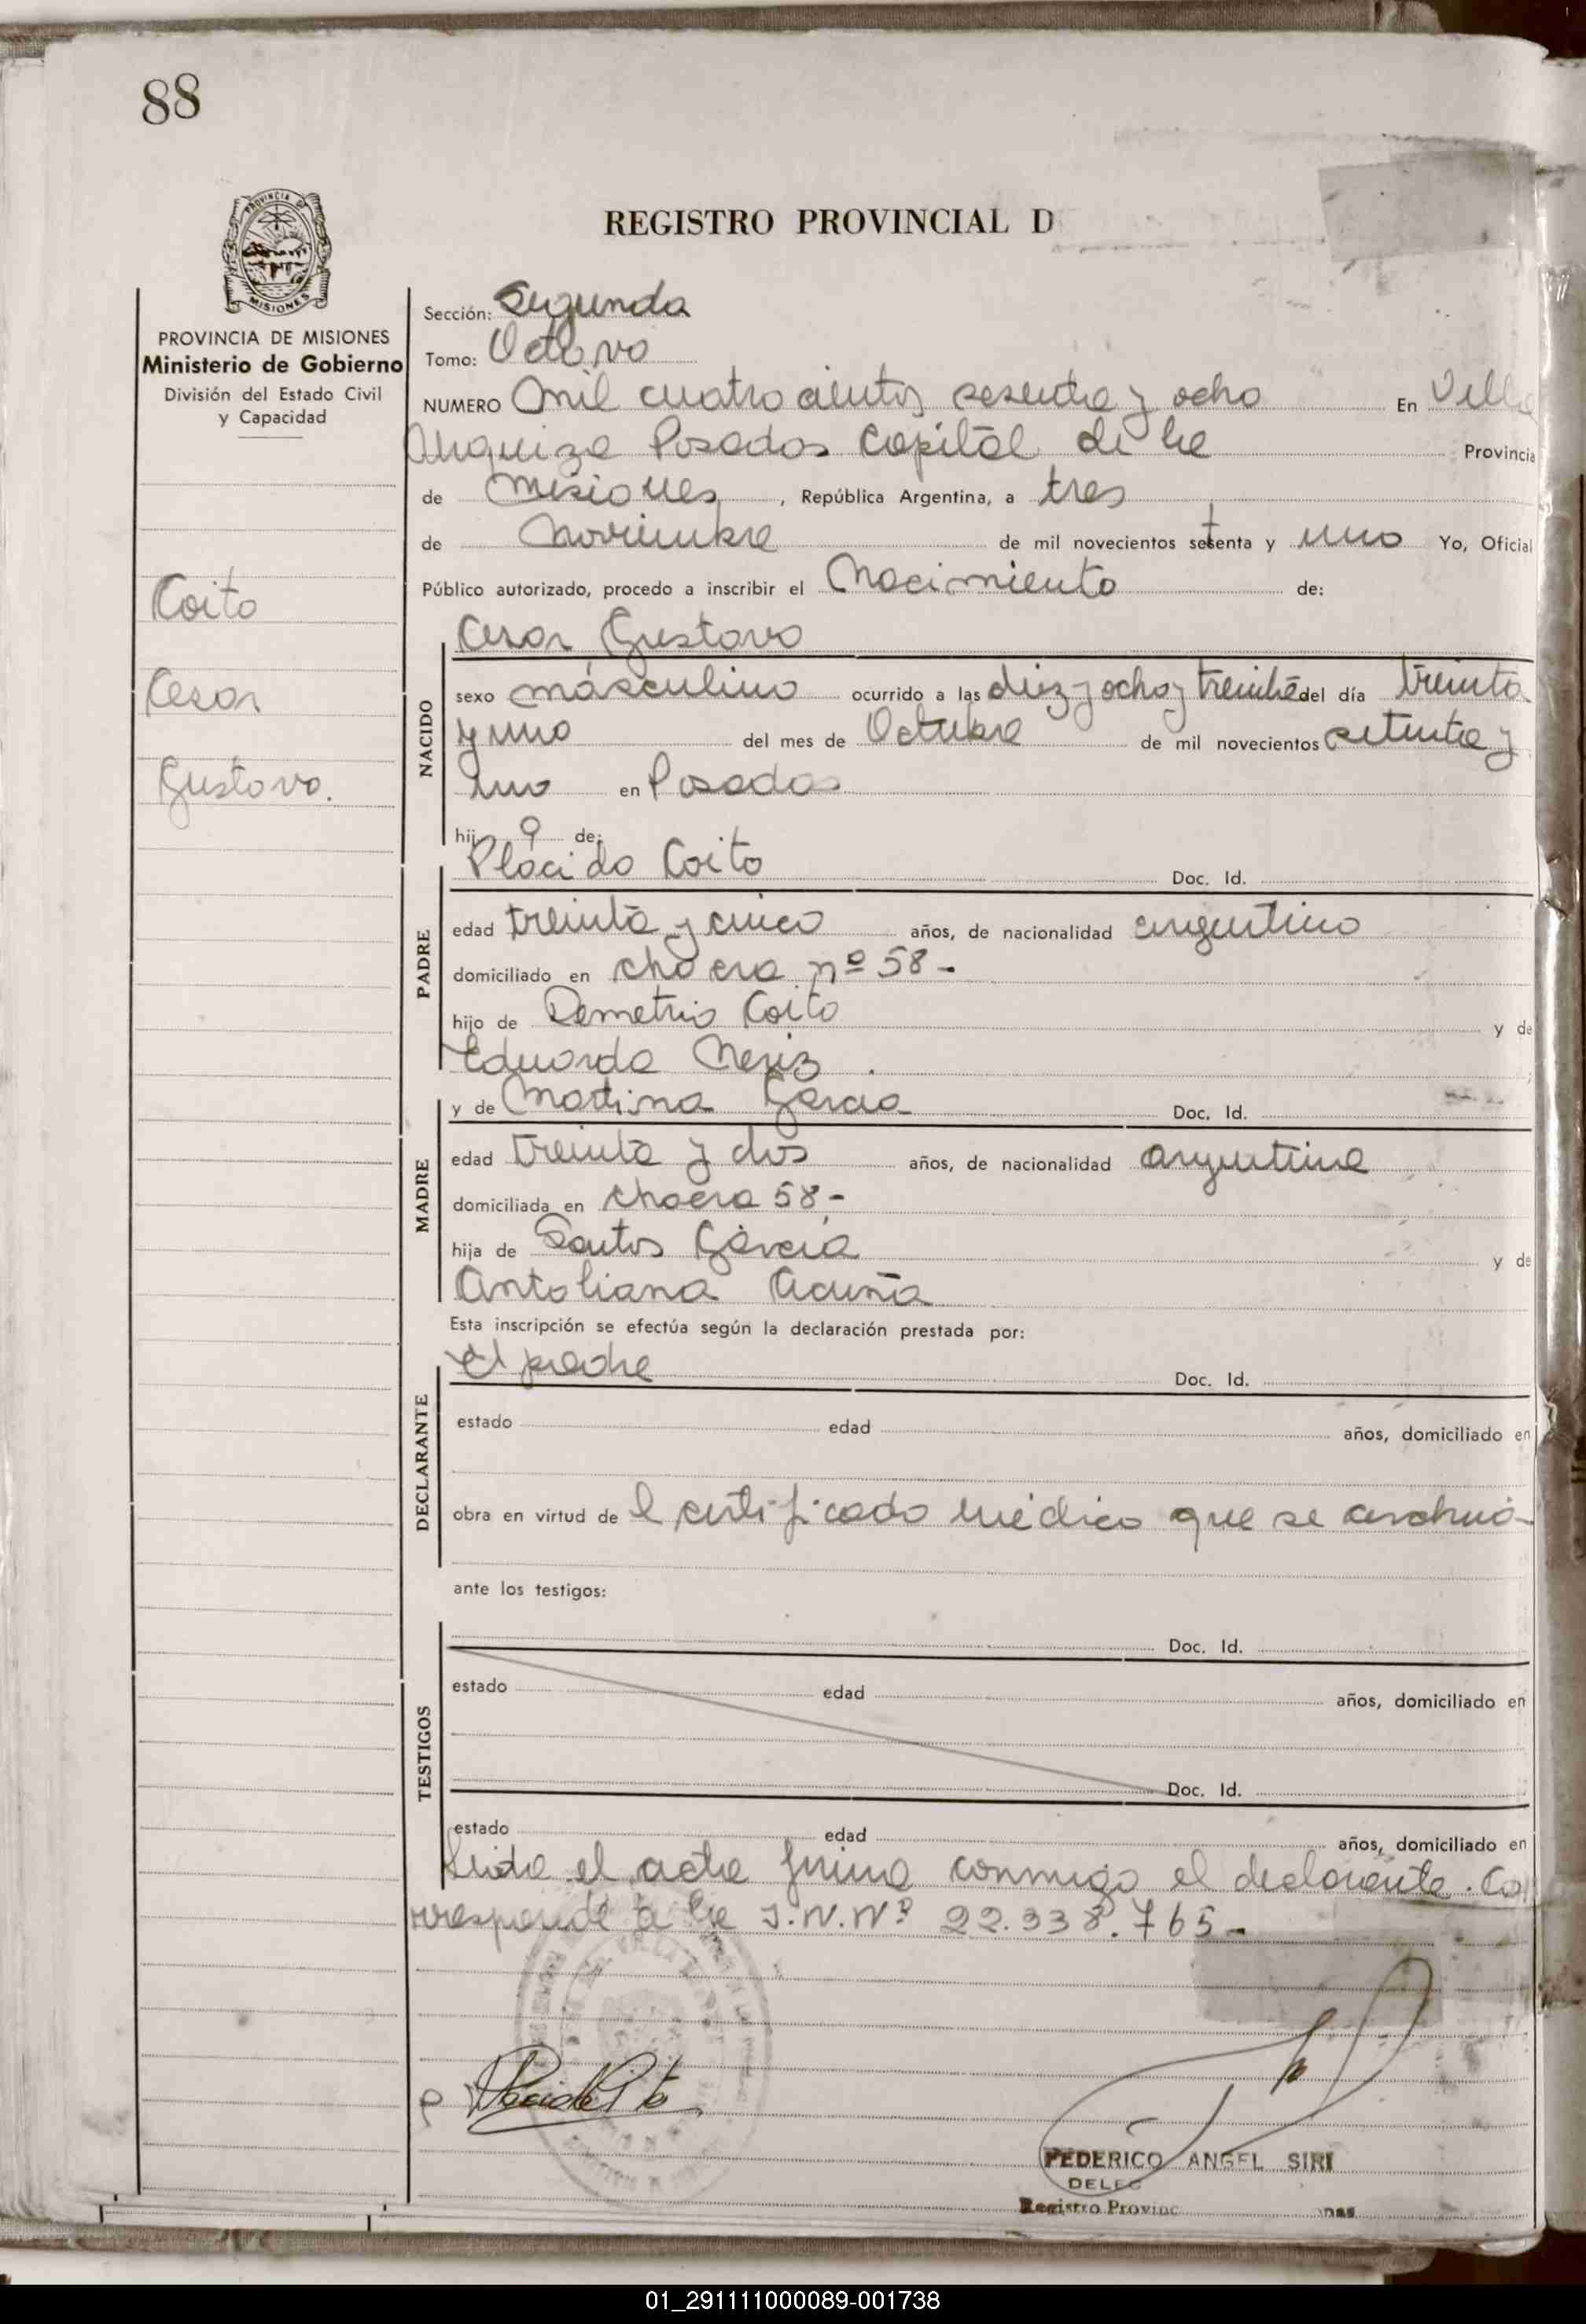 88
PROVINCIA DE MISIONES
REGISTRO PROVINCIAL D
PROVINCIA DE MISIONES
Ministerio de Gobierno
División del Estado Civil
y Capacidad
Coito
Cesar
Gustavo.
Sección: Segunda
Tomo: Octavo
NUMERO Mil cuatrocientos sesenta y ocho En Villa
Urquiza Posadas Capital de la Provincia
de Misiones, República Argentina, a tres
de Noviembre de mil novecientos setenta y uno Yo, Oficial
Público autorizado, procedo a inscribir el Nacimiento de:
Cesar Gustavo
NACIDO
sexo masculino ocurrido a las diez y ocho y treinta del día treinta
y uno del mes de Octubre de mil novecientos setenta y
uno en Posadas
hijo de:
Plácido Coito Doc. Id.
PADRE
edad treinta y cinco años, de nacionalidad argentino
domiciliado en chacra nº 58-
hijo de Demetrio Coito y de
Eduarda Neris
y de Martina Garcia Doc. Id.
MADRE
edad treinta y dos años, de nacionalidad argentina
domiciliada en chacra 58-
hija de Santos García y de
Antoliana Acuña
Esta inscripción se efectúa según la declaración prestada por:
el padre Doc. Id.
DECLARANTE
estado edad años, domiciliado en
obra en virtud de l certificado médico que se archivó-
ante los testigos:
Doc. Id.
TESTIGOS
estado edad años, domiciliado en
Doc. Id.
estado edad años, domiciliado en
Leida el acta firma conmigo el declarante. Co
rresponde a la I.N.Nº 22.338.765-
FEDERICO ANGEL SIRI
DELEG
Registro Provinc
01_291111000089-001738